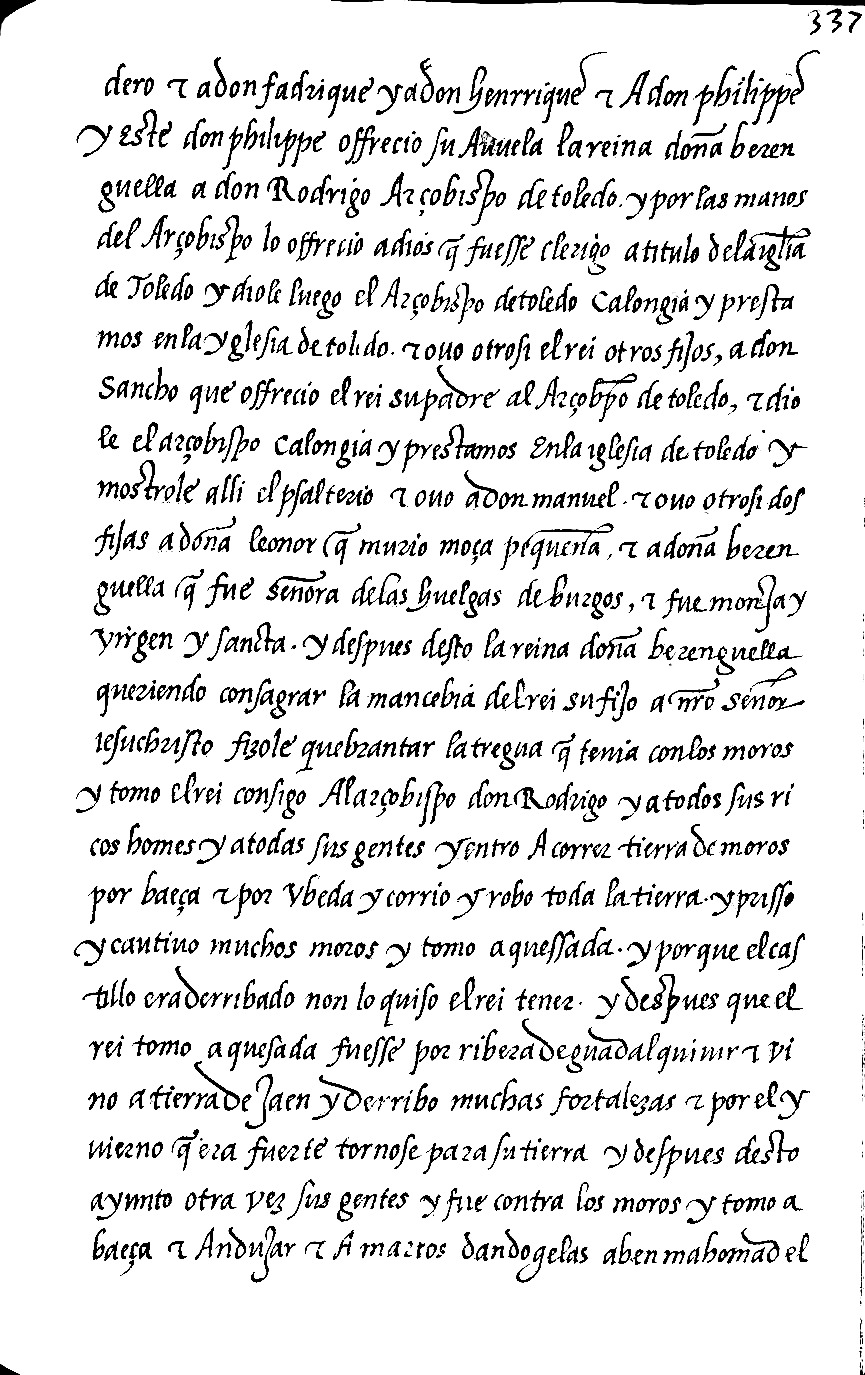 337
dero τ a don fadrique y a don Henrrique τ A don philippe
y Este don philippe offrecio su Auuela la reina doña beren
guella a don Rodrigo Arçobispo de toledo. y por las manos
del Arçobispo lo offrecio a dios q̃ fuesse clerigo a titulo de la iglia
de Toledo y diole luego el Arçobispo de toledo Calongia y presta
mos en la yglesia de toledo. τ ouo otrosi el rei otros fijos, a don
Sancho que offrecio el rei su padre al Arçobpo de toledo, τ dio
le el arçobispo Calongia y prestamos En la iglesia de toledo y
mostrole alli el psalterio τ ouo a don manuel. τ ouo otrosi dos
fijas a doña leonor q̃ murio moça pequeña, τ a doña beren
guella q̃ fue señora de las Huelgas de burgos, τ fue monja y
virgen y sancta. y despues desto la reina doña berenguella
queriendo consagrar la mancebia del rei su fijo a nr̃o señor
iesuchristo fizole quebrantar la tregua q̃ tenia con los moros
y tomo el rei consigo Al arçobispo don Rodrigo y a todos sus ri
cos homes y a todas sus gentes y entro A correr tierra de moros
por baeça τ por Vbeda y corrio y robo toda la tierra. y prisso
y cautiuo muchos moros y tomo a quessada. y por que el cas
tillo era derribado non lo quiso el rei tener. y despues que el
rei tomo a quesada fuesse por ribera de guadalquiuir τ vi
no a tierra de Jaen y derribo muchas fortalezas τ por el y
uierno q̃ era fuerte tornose para su tierra y despues desto
ayunto otra vez sus gentes y fue contra los moros y tomo a
baeça τ Andujar τ A martos dandogelas aben mahomad el